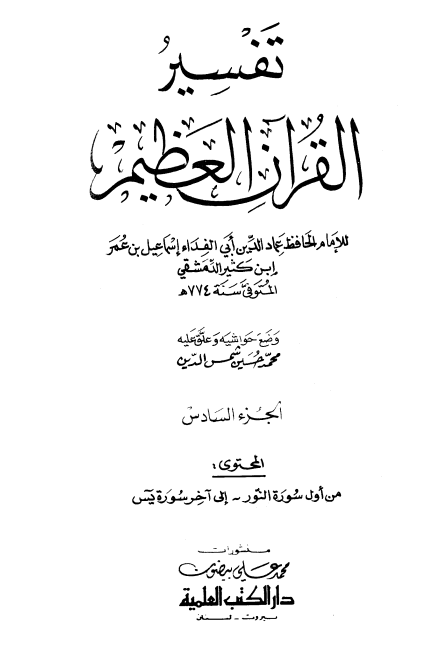 تَفْسِيرُ
القُرآنِ العَظِيمِ
للإمَام الحَافِظ عِمَاد الدِّين أَبي الفِدَاء إسْمَاعيل بن عُمَر
ابن كَثير الدِّمَشقي
المُتَوَفَّىٰ سَنَة ٧٧٤هـ
وَضَعَ حَواشِيَه وَعَلَّقَ عَليه
محمّد حُسَين شَمسُ الدّين
الجُزء السَادس
المُحتوى:
من أول سُورَة النّور - إلى آخِر سُورَة يَس
منشورات
محمّد علي بيضون
دار الكتب العلمية
بيروت - لبنان